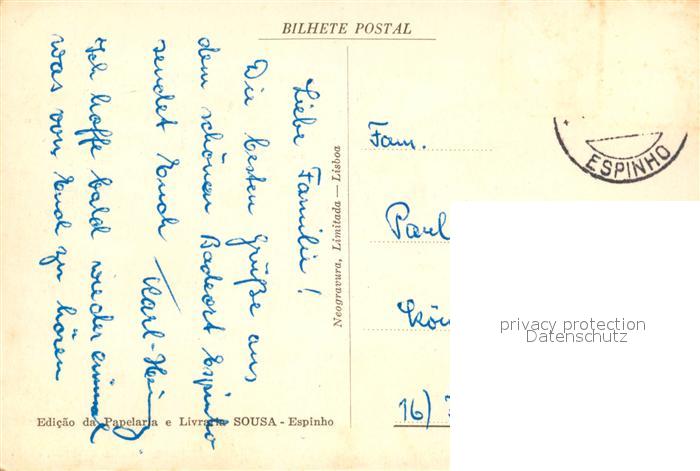 BILHETE POSTAL
Liebe Familie!
Die besten Grüße aus
dem schönen Badeort Espinho
sendet Euch Karl-Heinz
Ich hoffe bald wieder einmal
was von Euch zu hören
Neogravura, Limitada — Lisboa
ESPINHO
Fam.
Paul
16)
privacy protection
Datenschutz
Edição da Papelaria e Livraria SOUSA - Espinho